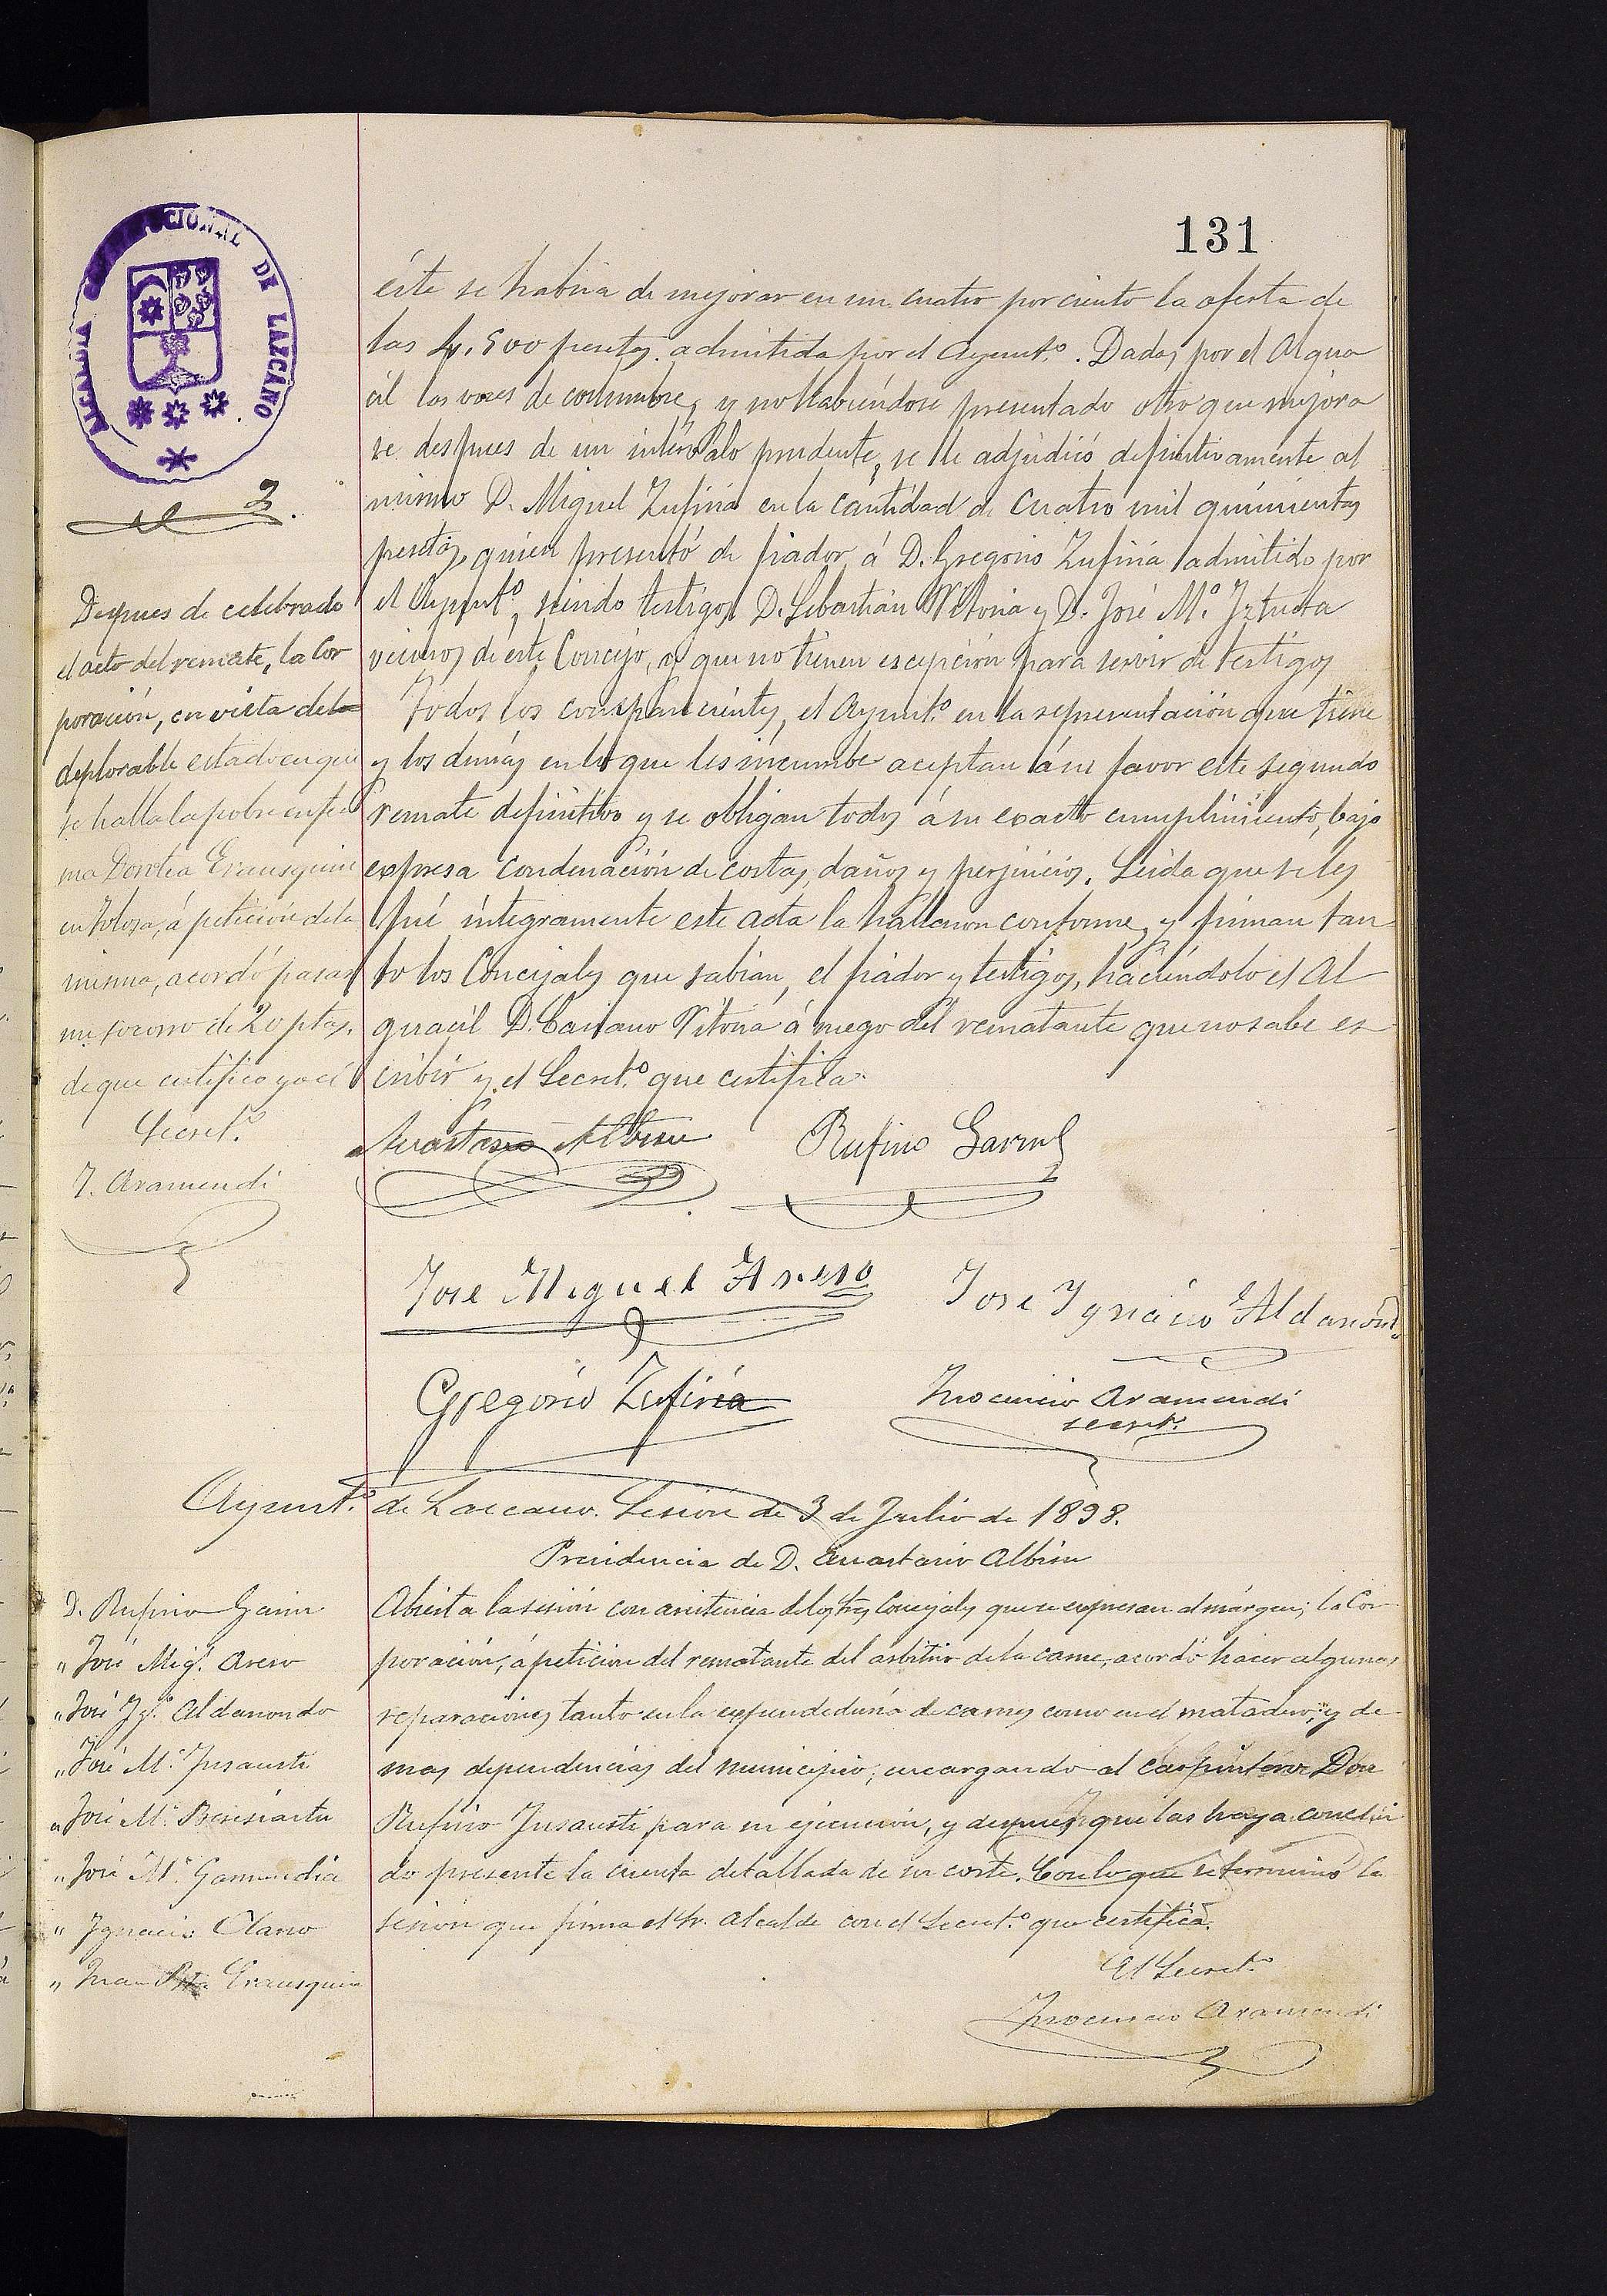 131
ALCALDIA CONSTITUCIONAL DE LAZCANO
éste se habria de mejorar en un cuatro por ciento la oferta de
las 4.500 pesetas admitida por el Ayunt.º. Dadas por el Algua
cil las voces de costumbre, y no habiéndose presentado otro que mejora
se despues de un intérvalo prudente, se le adjudicó definitivamente al
mismo D. Miguel Zufiria en la cantidad de cuatro mil quinientas
pesetas, quien presentó de fiador á D. Gregorio Zufiria admitido por
el Ayunt.º, siendo testigos D. Sebastián Vitoria y D. José M.ª Iztueta
vecinos de éste Concejo, y que no tienen escepción para servir de testigos
Todos los comparecientes, el Ayunt.º en la representación que tiene
y los demás en lo que les incumbe aceptan á su favor este segundo
remate definitivo y se obligan todos á su exacto cumplimiento, bajo
expresa condenación de costas, daños y perjuicios. Leida que se les
fué íntegramente este acta la hallaron conforme, y firman tan
to los Concejales que sabian, el fiador y testigos, haciéndolo el Al
guacil D. Casiano Vitoria á ruego del rematante que no sabe es
cribir y el Secret.º que certifica.
Despues de celebrado
el acto del remate, la Cor
poración, en vista del
deplorable estado en que
se halla la pobre enfer
ma Dorotea Erausquin
en Tolosa, á petición de la
misma, acordó pasar
un socorro de 20 ptas.
de que certifico yo el
Secret.º
I. Aramendi
Anastasio Albisu Rufino Garin
Jose Miguel Areso Jose Ygnacio Aldanondo
Gregorio Zufiria Inocencio Aramendi
secret.º
Ayunt.º de Lazcano. Sesión de 3 de Julio de 1898.
Presidencia de D. Anastasio Albisu
D. Rufino Garin
" José Mig.l Areso
" José Ig.º Aldanondo
" José M.ª Insausti
" José M.ª Beresiartu
" José M.ª Garmendia
" Ygnacio Olano
" Juan Bta Erausquin
Abierta la sesión con asistencia de los Sres Concejales que se expresan al márgen; la Cor
poración, á petición del rematante del arbitrio de la carne, acordó hacer algunas
reparaciones tanto en la expendeduria de carnes como en el matadero, y de
mas dependencias del municipio; encargando al carpintero Don
Rufino Insausti para su ejecución, y despues que las haya conclui
do presente la cuenta detallada de su coste. Con lo que se terminó la
sesion que firma el Sr. Alcalde con el Secret.º que certifica.
El Secret.º
Inocencio Aramendi